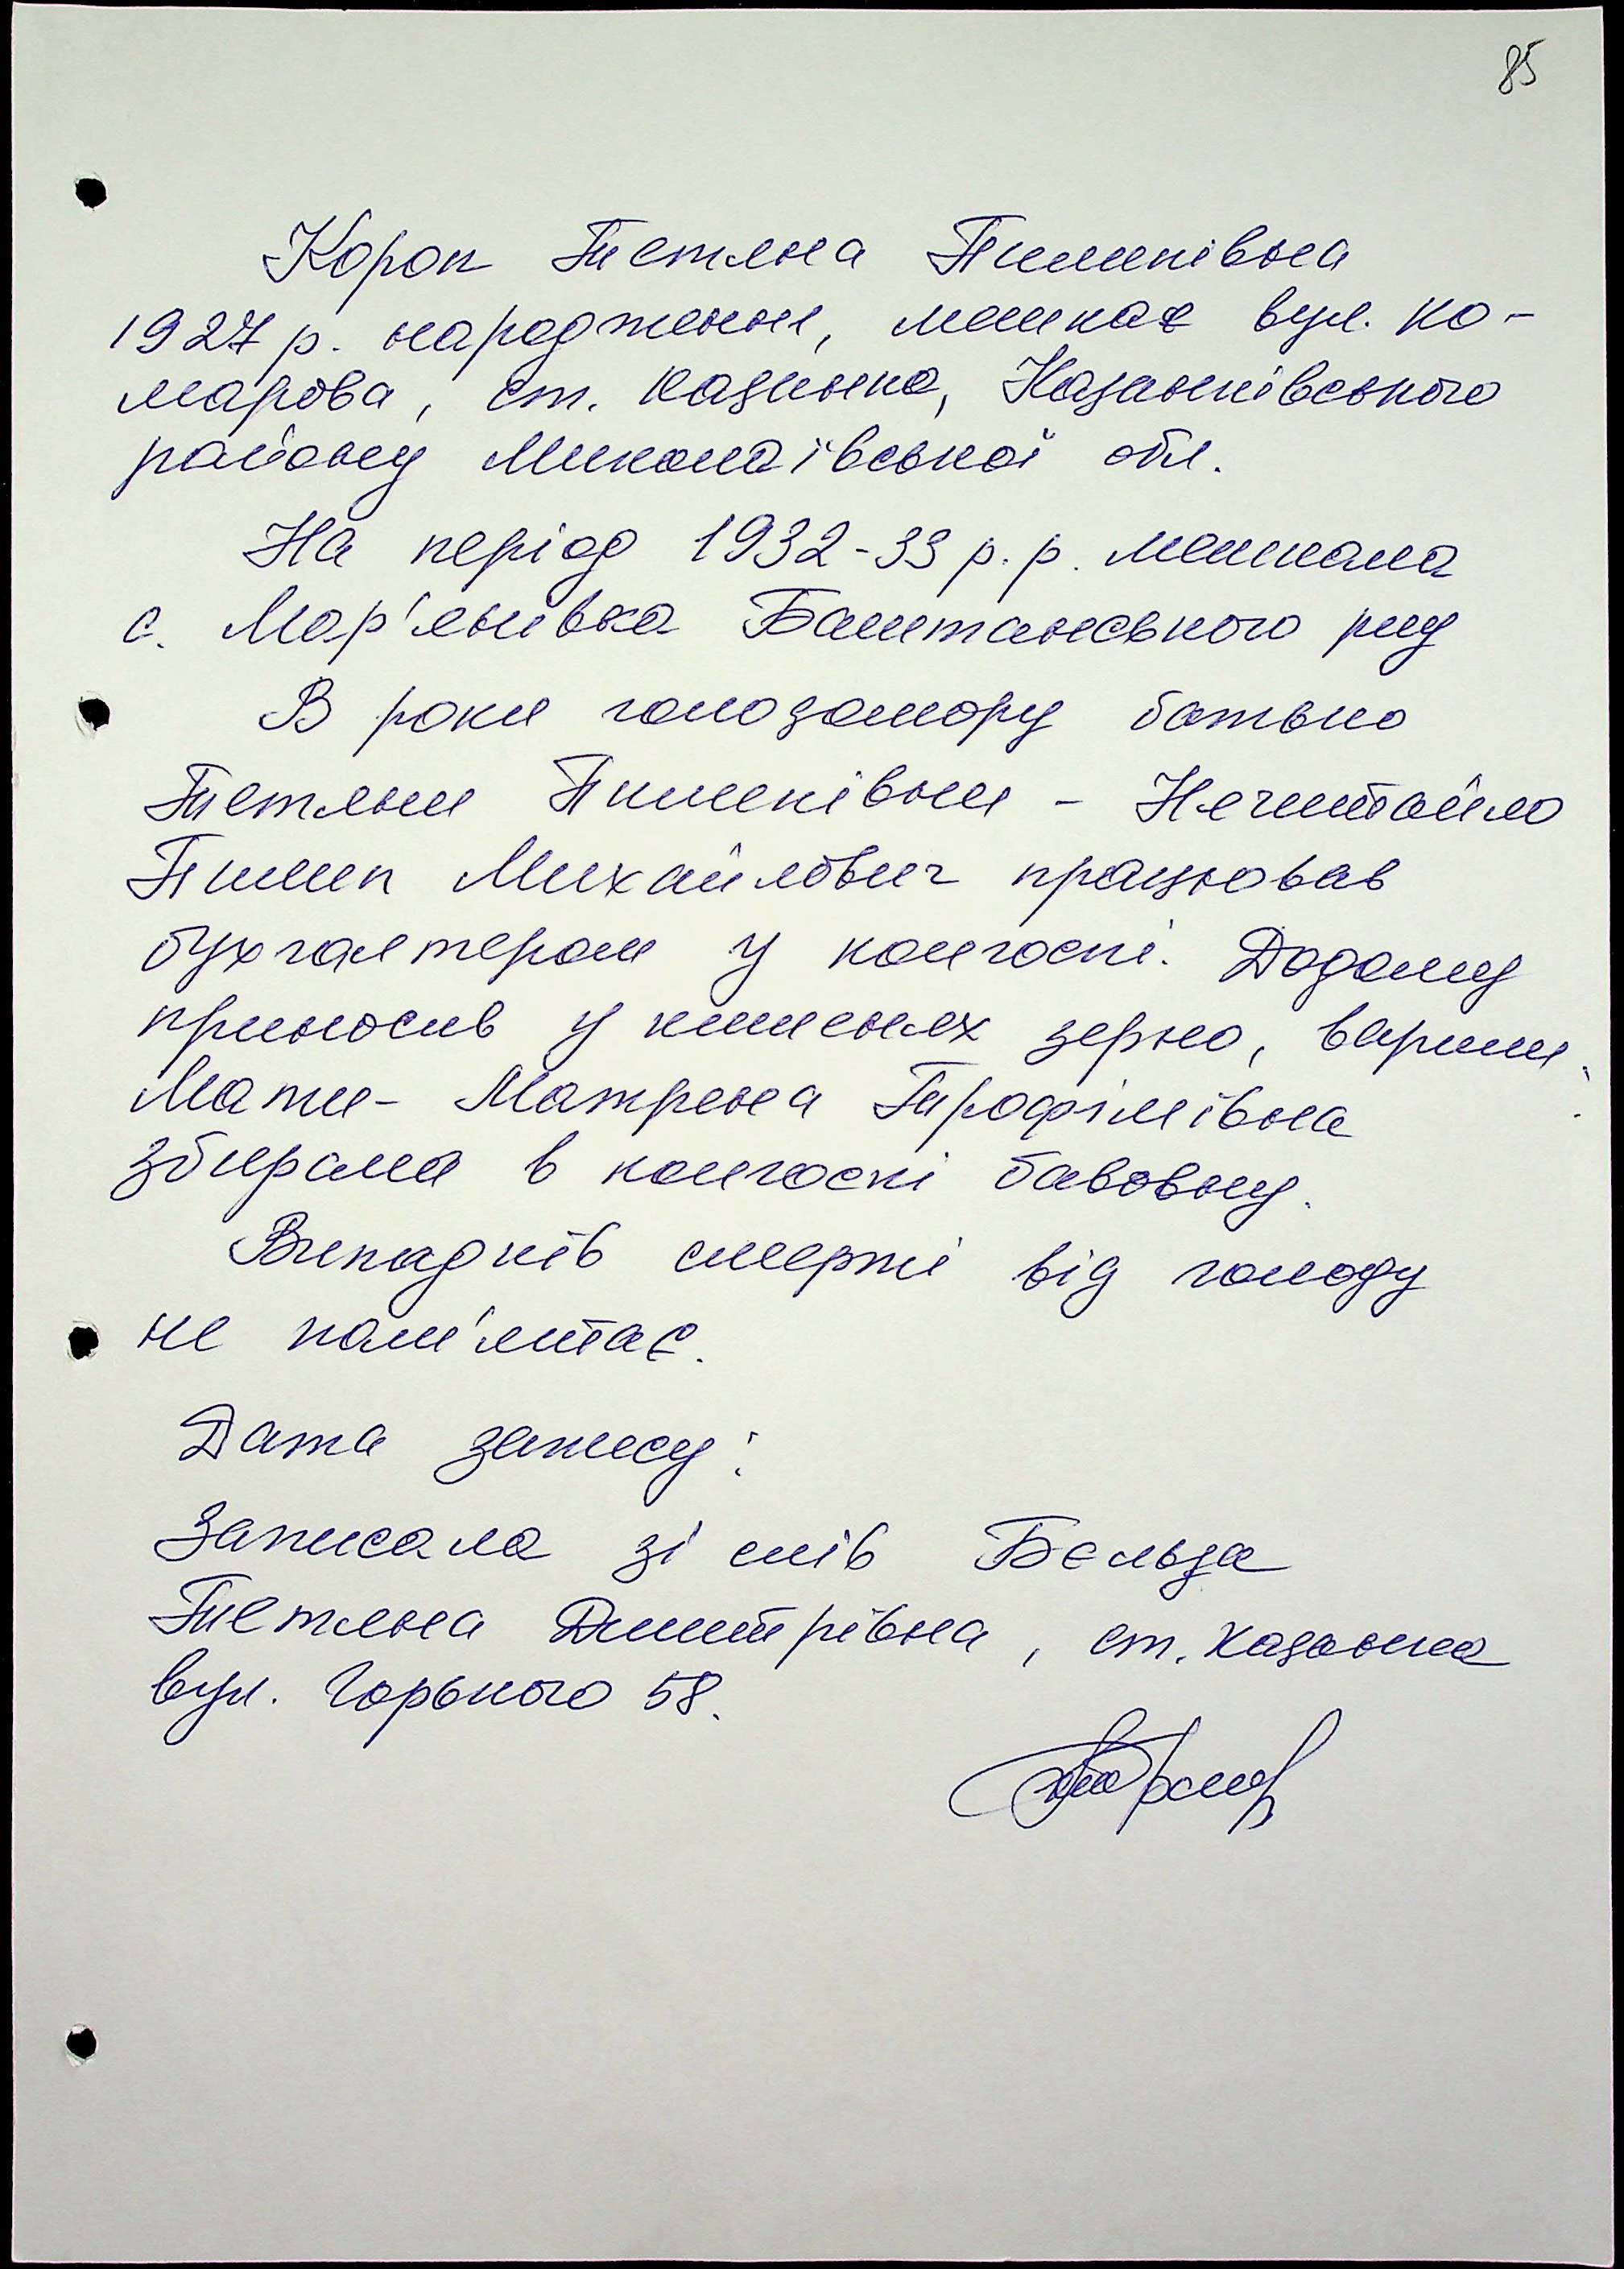 85
Короп Тетяна Пилипівна
1927 р. народження, мешкає вул. Ко-
марова, ст. Казанка, Казанківського
району Миколаївської обл.
На період 1932-33 р.р. мешкала
с. Мар'янівка Баштанського р-ну
В роки голодомору батько
Тетяни Пилипівни - Нечитайло
Пилип Михайлович працював
бухгалтером у колгоспі. Додому
приносив у кишенях зерно, варили.
Мати - Матрена Трофімівна
збирала в колгоспі бавовну.
Випадків смерті від голоду
не пам'ятає.
Дата запису:
Записала зі слів Бєльза
Тетяна Дмитрівна, ст. Казанка
вул. Горького 58.